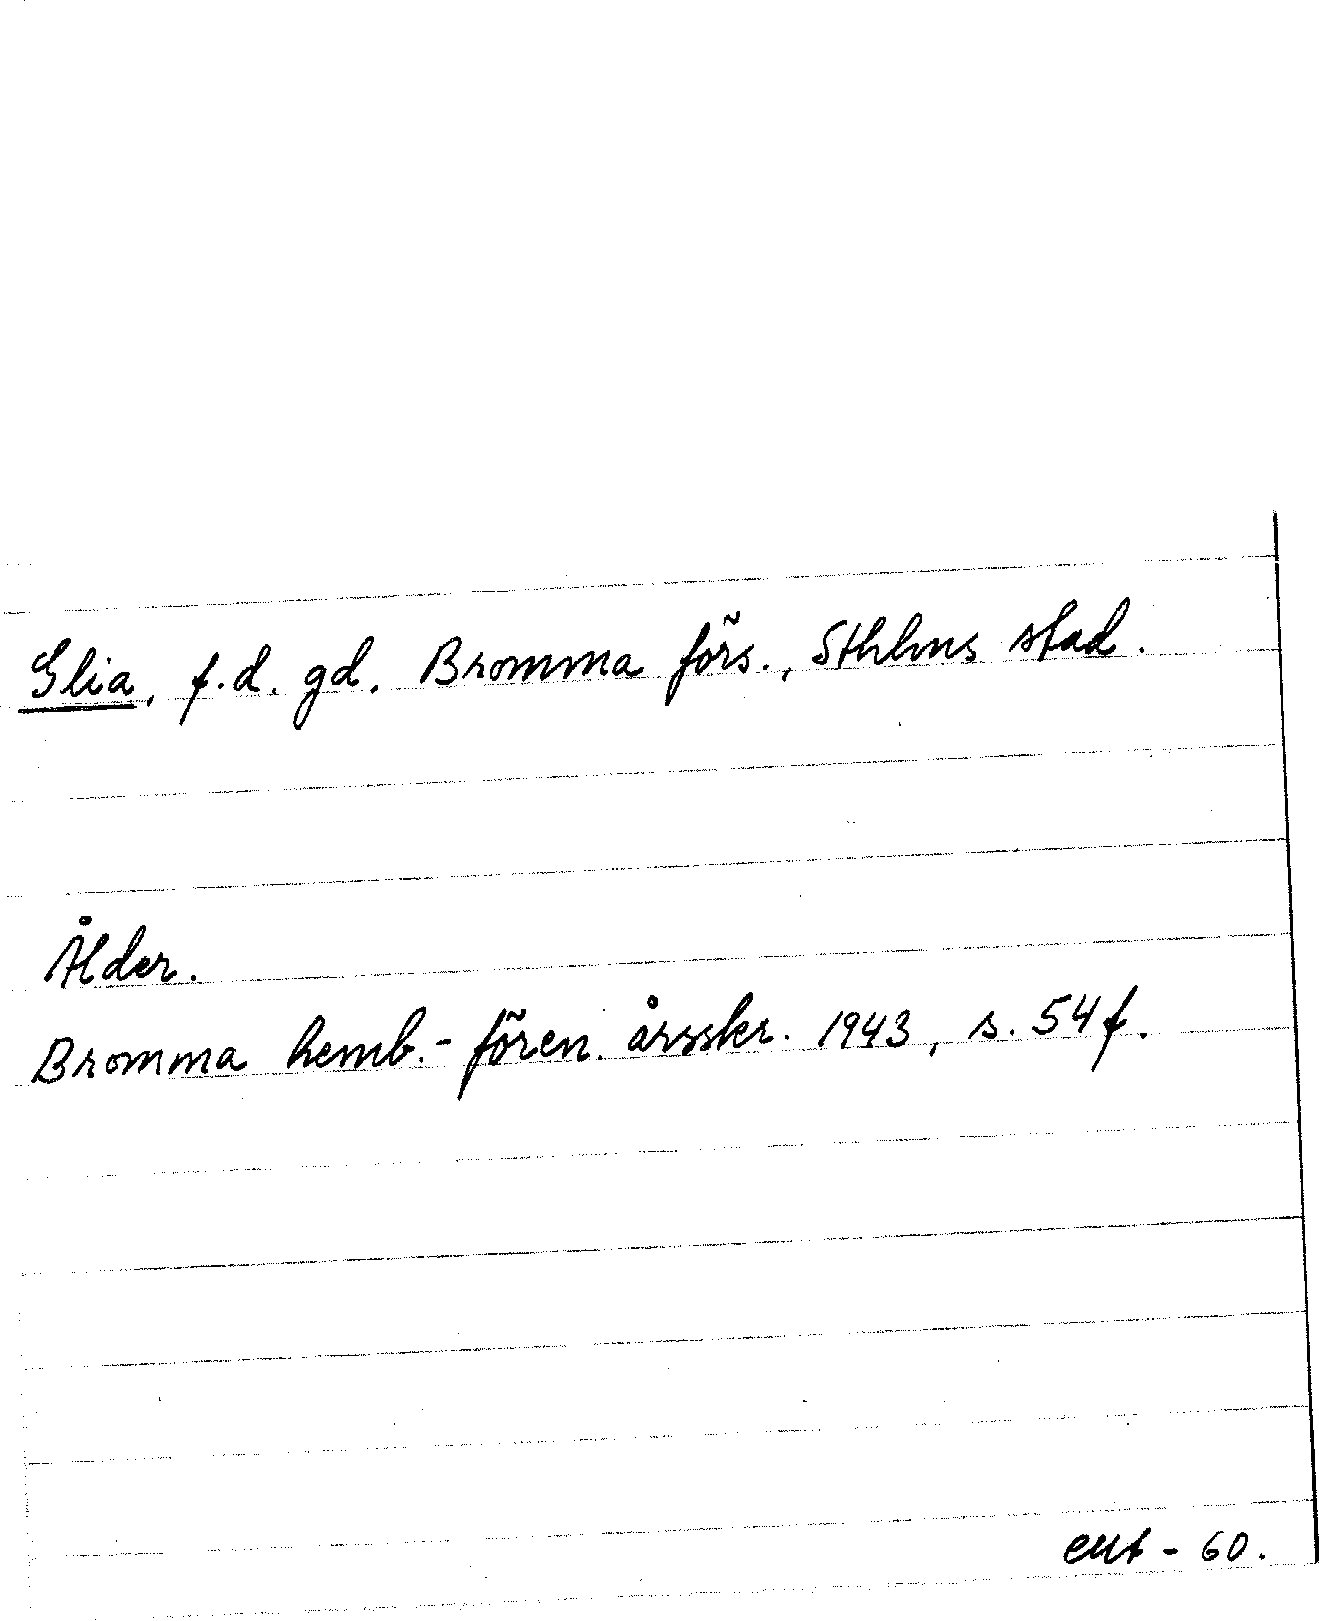 Glia, f.d. gd. Bromma förs., Sthlms stad.
Ålder.
Bromma hemb.-fören. årsskr. 1943, s. 54 f.
- 60.